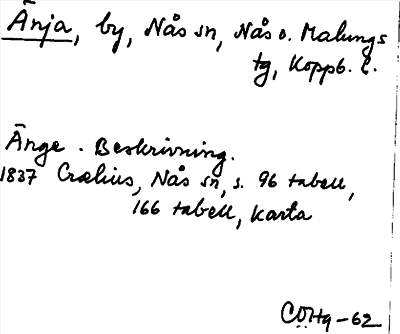 Änja, by, Nås sn, Nås o. Malungs
tg, Koppb. l.
Änge. Beskrivning.
1837 Crælius, Nås sn, s. 96 tabell,
166 tabell, karta
CÖHq-62